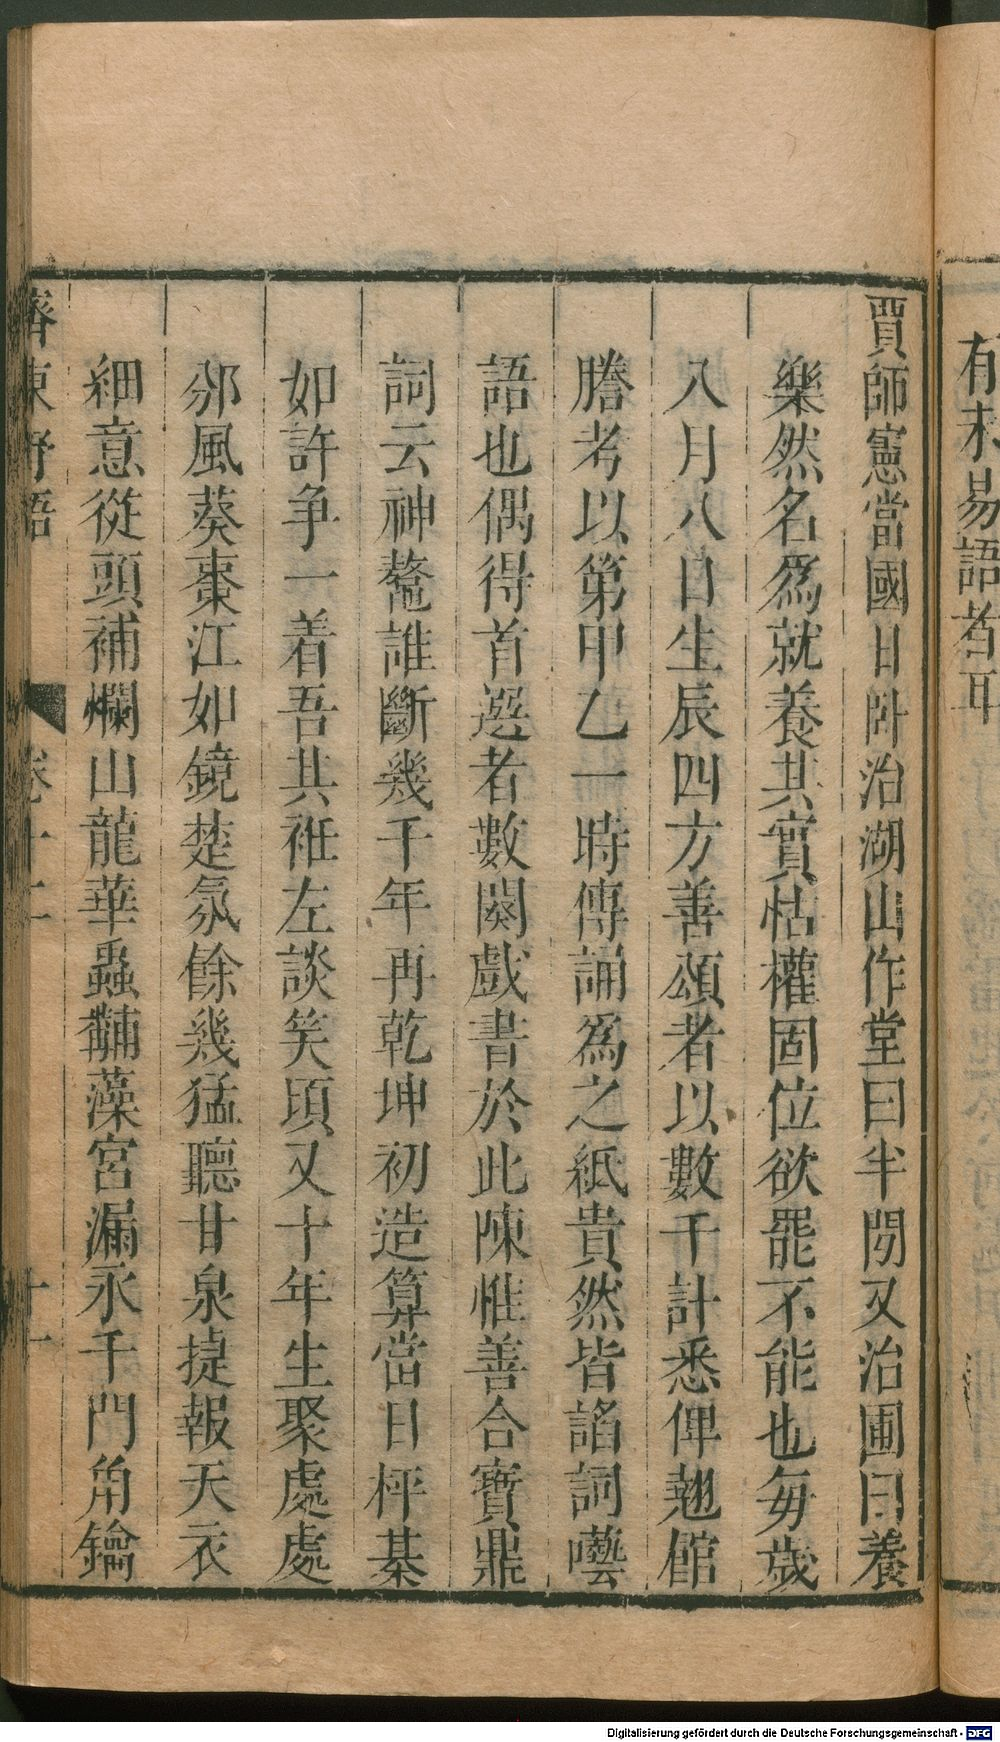 有未易語者耳
賈師憲當國日卧治湖山作堂曰半閒又治圃曰養
樂然名爲就養其實怙權固位欲罷不能也每歲
八月八日生辰四方善頌者以數千計悉俾翹館
謄考以第甲乙一時傳誦爲之紙貴然皆諂詞囈
語也偶得首選者數闋戲書於此陳惟善合寶鼎
詞云神鼇誰斷幾千年再乾坤初造算當日枰棊
如許争一着吾其袵左談笑頃又十年生聚處處
邠風葵棗江如鏡楚氛餘幾猛聽甘泉捷報天衣
細意從頭補爛山龍華蟲黼藻宮漏永千門角鑰
齊東野語 卷十二 十一
Digitalisierung gefördert durch die Deutsche Forschungsgemeinschaft - DFG